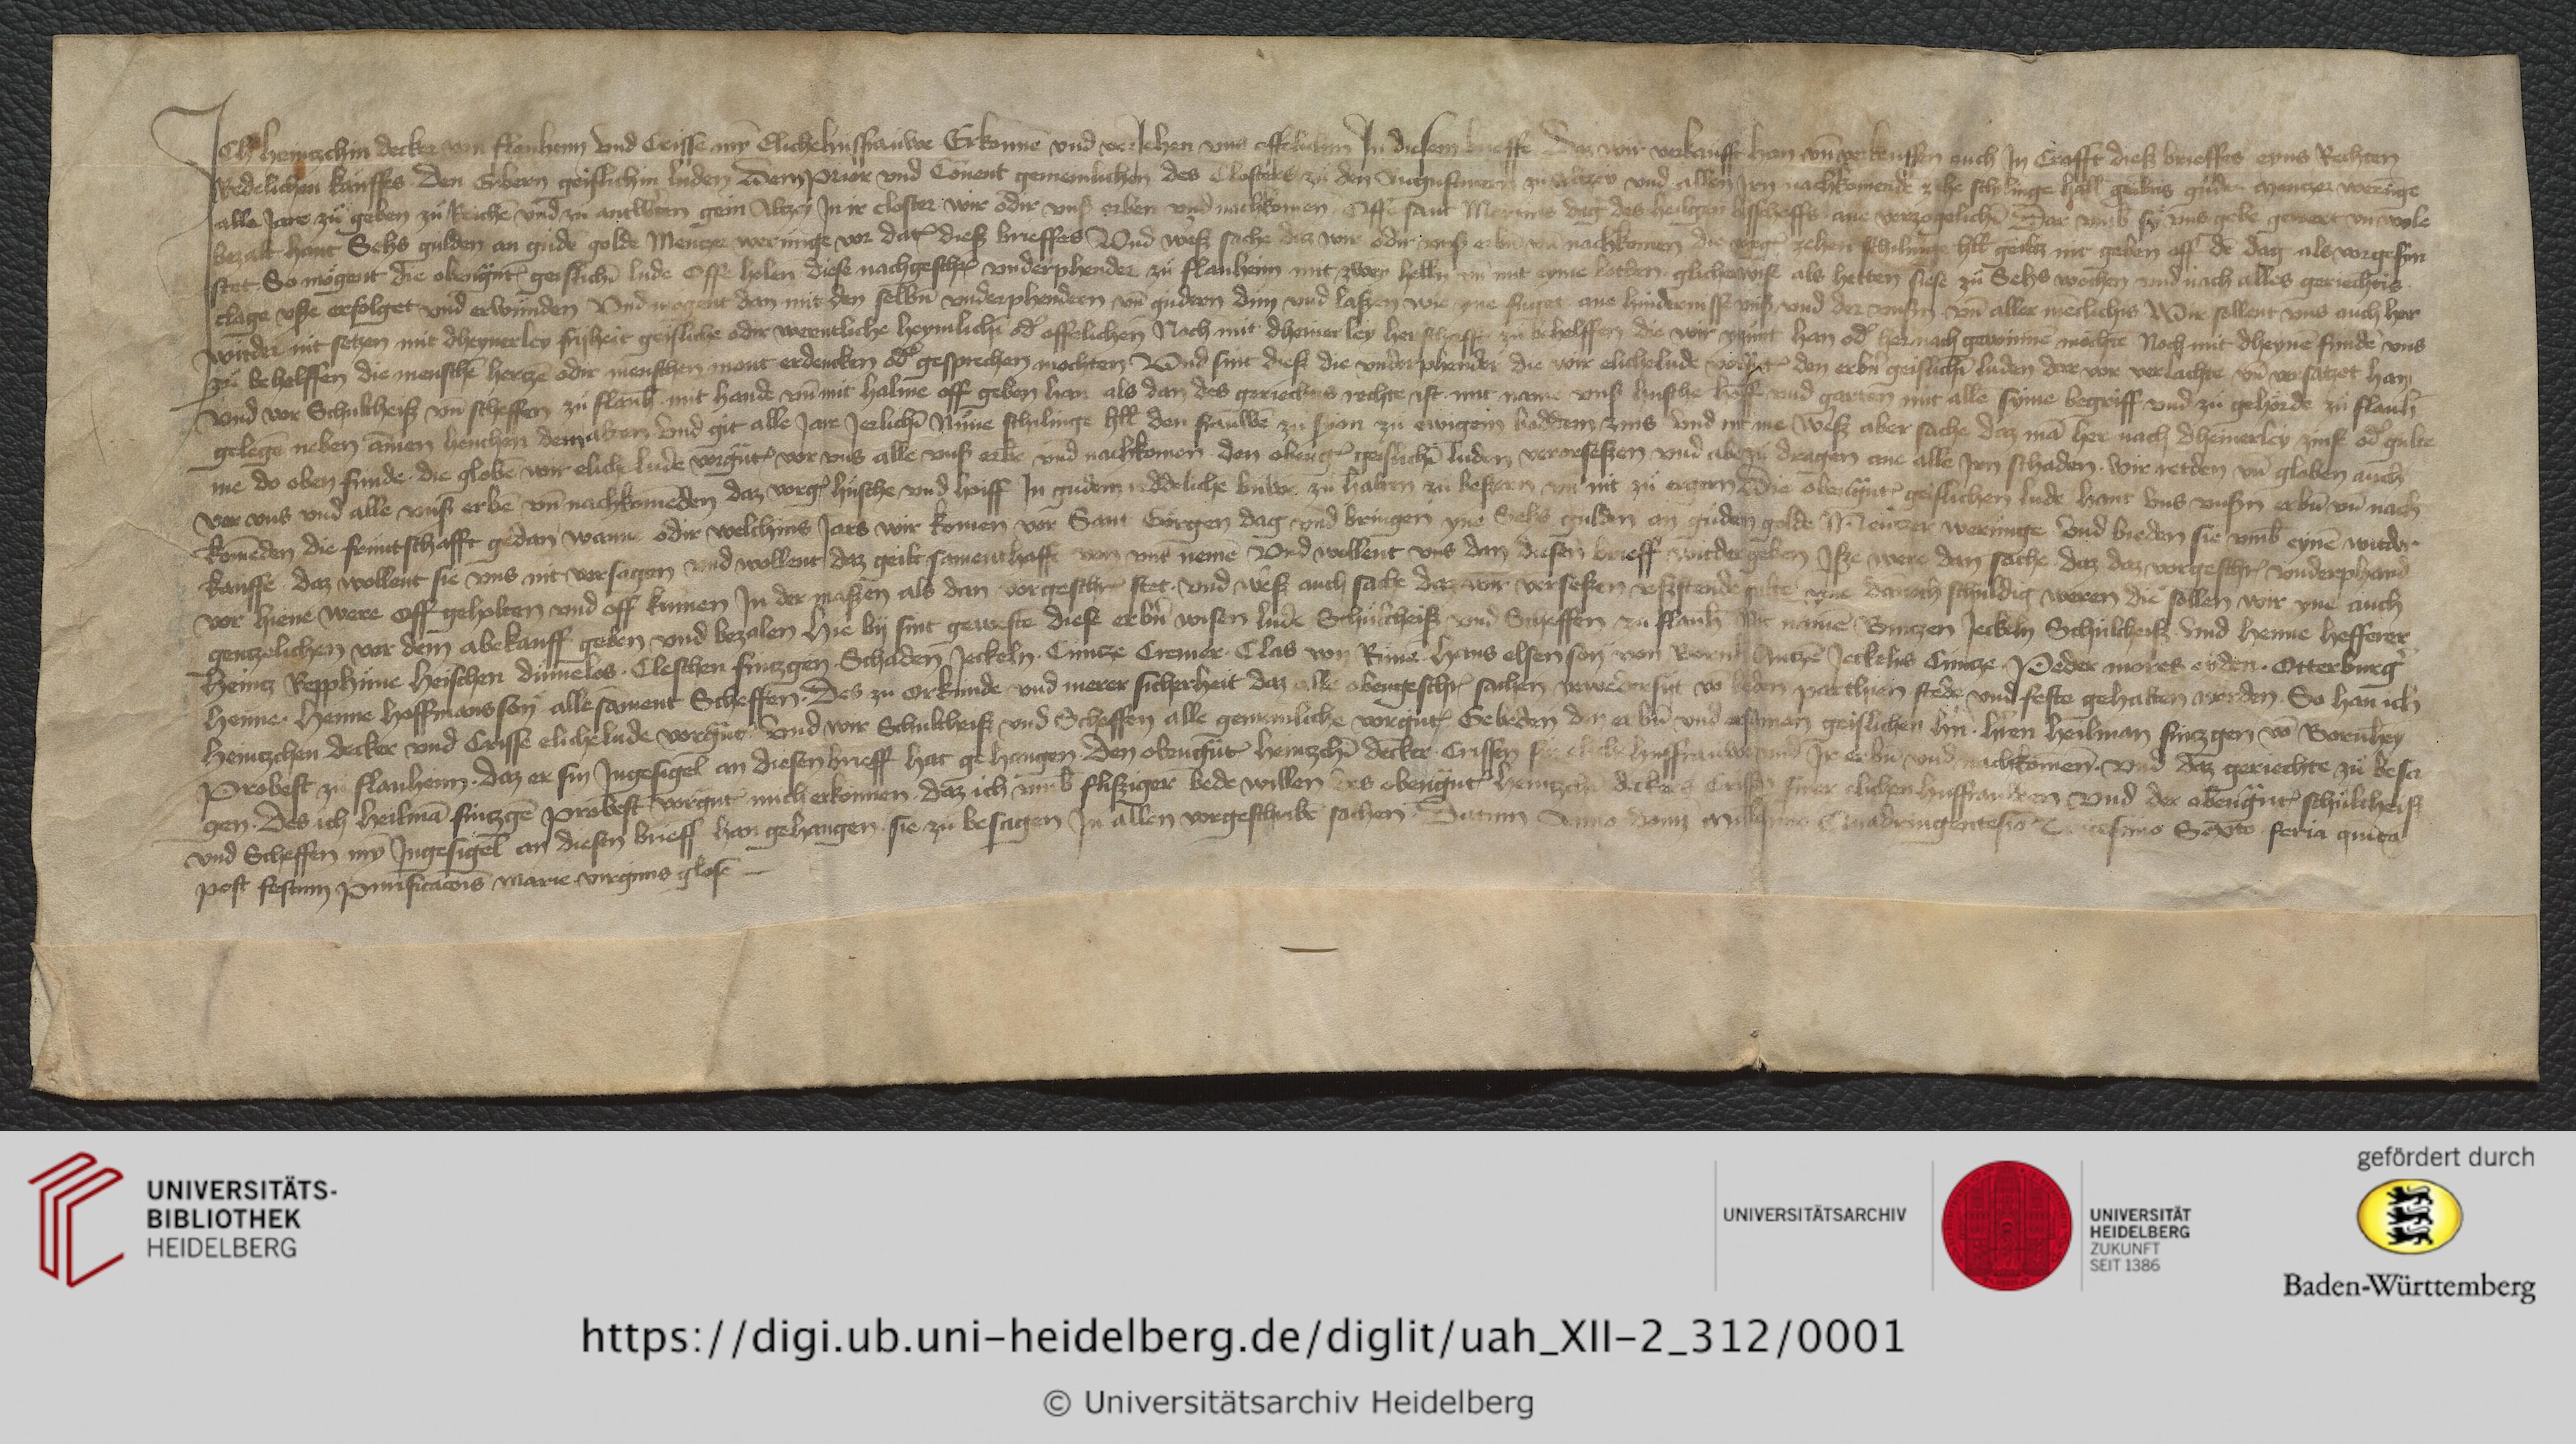 Ich heintzchin decker von flanheim und Crisse myn Elichehussfrauwe Erkennen und veriehen uns offelichin In diesem brieffe Daz wir verkaufft han un verkeuffen auch In Crafft dieß brieffes eyns Rechten
Redelichen kauffes Den Erbern geistlichin luden Dem Prior und Conent gemeinlichen des Closters zu den Augustinern zu Altzey und allen Jrn nachkomende zehe schilinge hell geltis guder mentzer werunge
alle Jare zu geben zu Reichē und zu antwerten gein Altzey In ir closter wir odir unß erben und nachkomen Offe sant Mertins dag des heilgen bisscheffs ane verzogelichī Dar umb sy uns gebē gewert un wole
bezalt hant Sehs gulden an gudē golde Mentzer werunge vor dat dieß brieffes Und weß sache daz wir odir unß erbn un nachkomen die vorg zehen schilinge hll geltz nit geben off dē dag als vorgeschn
stet So mogent die obengnt geistlichī lude Offe holen diese nachgeschr underphender zu flanheim mit zwen helln un mit eyme botten glicherwise als hetten siese zu Sehs wochen und nach alles geriechtis
clage uße erfolget und erwunden Und mogent dan mit den selbin underphendern un gudern dun und laßen wie yne fuget ane hindernisse unß und der unßn un aller meclichis Wir sollent uns auch her
widder nit setzen mit dheynerley friheit geistliche odir werntliche heymlichī od offelichen Noch mit dheinerley herschafft zu behelffen die wir ytzunt han od hernach gewinnen mochtē Noch mit dheynē funde uns
zu behelffen die menschē hertzē odir menschen mont erdencken od gesprechen mochten Und sint dieß die underphender die wir elichelude vorgnt den erbn geistlichī luden dar vor verlachte un versatzet han
und vor Schultheiß un scheffen zu flanh mit hande un mit halme off geben han als dan des geriechtis rechte ist mit name unß husche hoff und garten mit alle syme begriff und zu gehorde zu flanh
gelegē neben ainen henchen dem alten Und git alle Jare Jerlichī Nune schilinge hll den frauwē zu syon zu ewigem boddem zins Und nit me Weß aber sache daz mā her nach dheinerley zinß od gulte
me do oben funde die globē wir eliche lude vorgnt vor uns alle unß erbē und nachkomen den obeng geistlichī luden verorseßen und abezu dragen ane alle Jrn schaden wir redden un globen auch
vor uns und alle unß erbē un nachkomēden daz vorg husche und hoiff In gudem reddeliche buwe zu halten zu beßern un nit zu ergern Die obengnt geistlichen lude hant uns unßn erbn un nach
komēden die fruntschafft gedan wanne odir welchins Jars wir komen vor Sant Gorgen dag und bringen yne Sehs gulden an guden golde Mentzer werunge Und bieden sie umb eynē widder
kauffe daz wollent sie uns nit versagen und wollent daz gelt sementhafft von uns nemē Und wollent uns dan diesen brieff widdergeben Iße were dan sache daz daz vorgeschr underphand
vor hiene were Off geholten und off kumen In der maßen als dan vorgeschr stet und weß auch sache daz wir verseßen ußstende gulte yne dannoch schuldig weren die sollen wir yne auch
gentzelichen vor dem abekauff geben und bezalen Hie bij sint geweste diese erbn wisen lude Schultheiß und Scheffen zu flanh Mit namē Contzen Jeckeln Schultheiß und Henne Hefferer
Heintz Repphune Heischen dumelos Cleschen sintzgen Schaden Jeckeln Cuntze Cremer Clas von Rime Hans elsen son von Bornh Antzē Jeckelis Cuntze Peder mores eyden Otterburg
Henne Henne Hoffmans son alle sament Scheffen Des zu Orkunde und merer sicherheit daz alle obengeschr sachen yewedersijt vō beden parthien stede und feste gehalten werden So han ich
Heintzchen decker und Crisse elichelude vorgnt Und wir Schultheiß und Scheffen alle gemeinliche vorgnt Gebeden den erbn und ersamen geistlichen hn Hren Heilman sintzgen vō Bornhey
Probest zu flanheim daz er sin Ingesigel an diesen brieff hat gehangen Den obengnt heintzchī decker Crissen sin eliche hussfrauwe und Jr erbn und nachkomen Und daz geriechte zu besa
gen Des ich heilmā sintzgē probest vorgnt mich erkennen daz ich umb flißiger bede willen des obengnt heintzchī deckers Crissen siner elichen hussfrauwen Und der obengnt schultheiß
und Scheffen myn Ingesigel an diesen brieff han gehangen sie zu besagen In allen vorgeschribē sachen Datum Anno domī millesimo Quadringentesio Tricesimo Sexto feria quīta
post festum Purificacōis marie virginis gloſe

UNIVERSITÄTS-
BIBLIOTHEK
HEIDELBERG
UNIVERSITÄTSARCHIV
UNIVERSITÄT
HEIDELBERG
ZUKUNFT
SEIT 1386
gefördert durch
Baden-Württemberg
https://digi.ub.uni-heidelberg.de/diglit/uah_XII-2_312/0001
© Universitätsarchiv Heidelberg